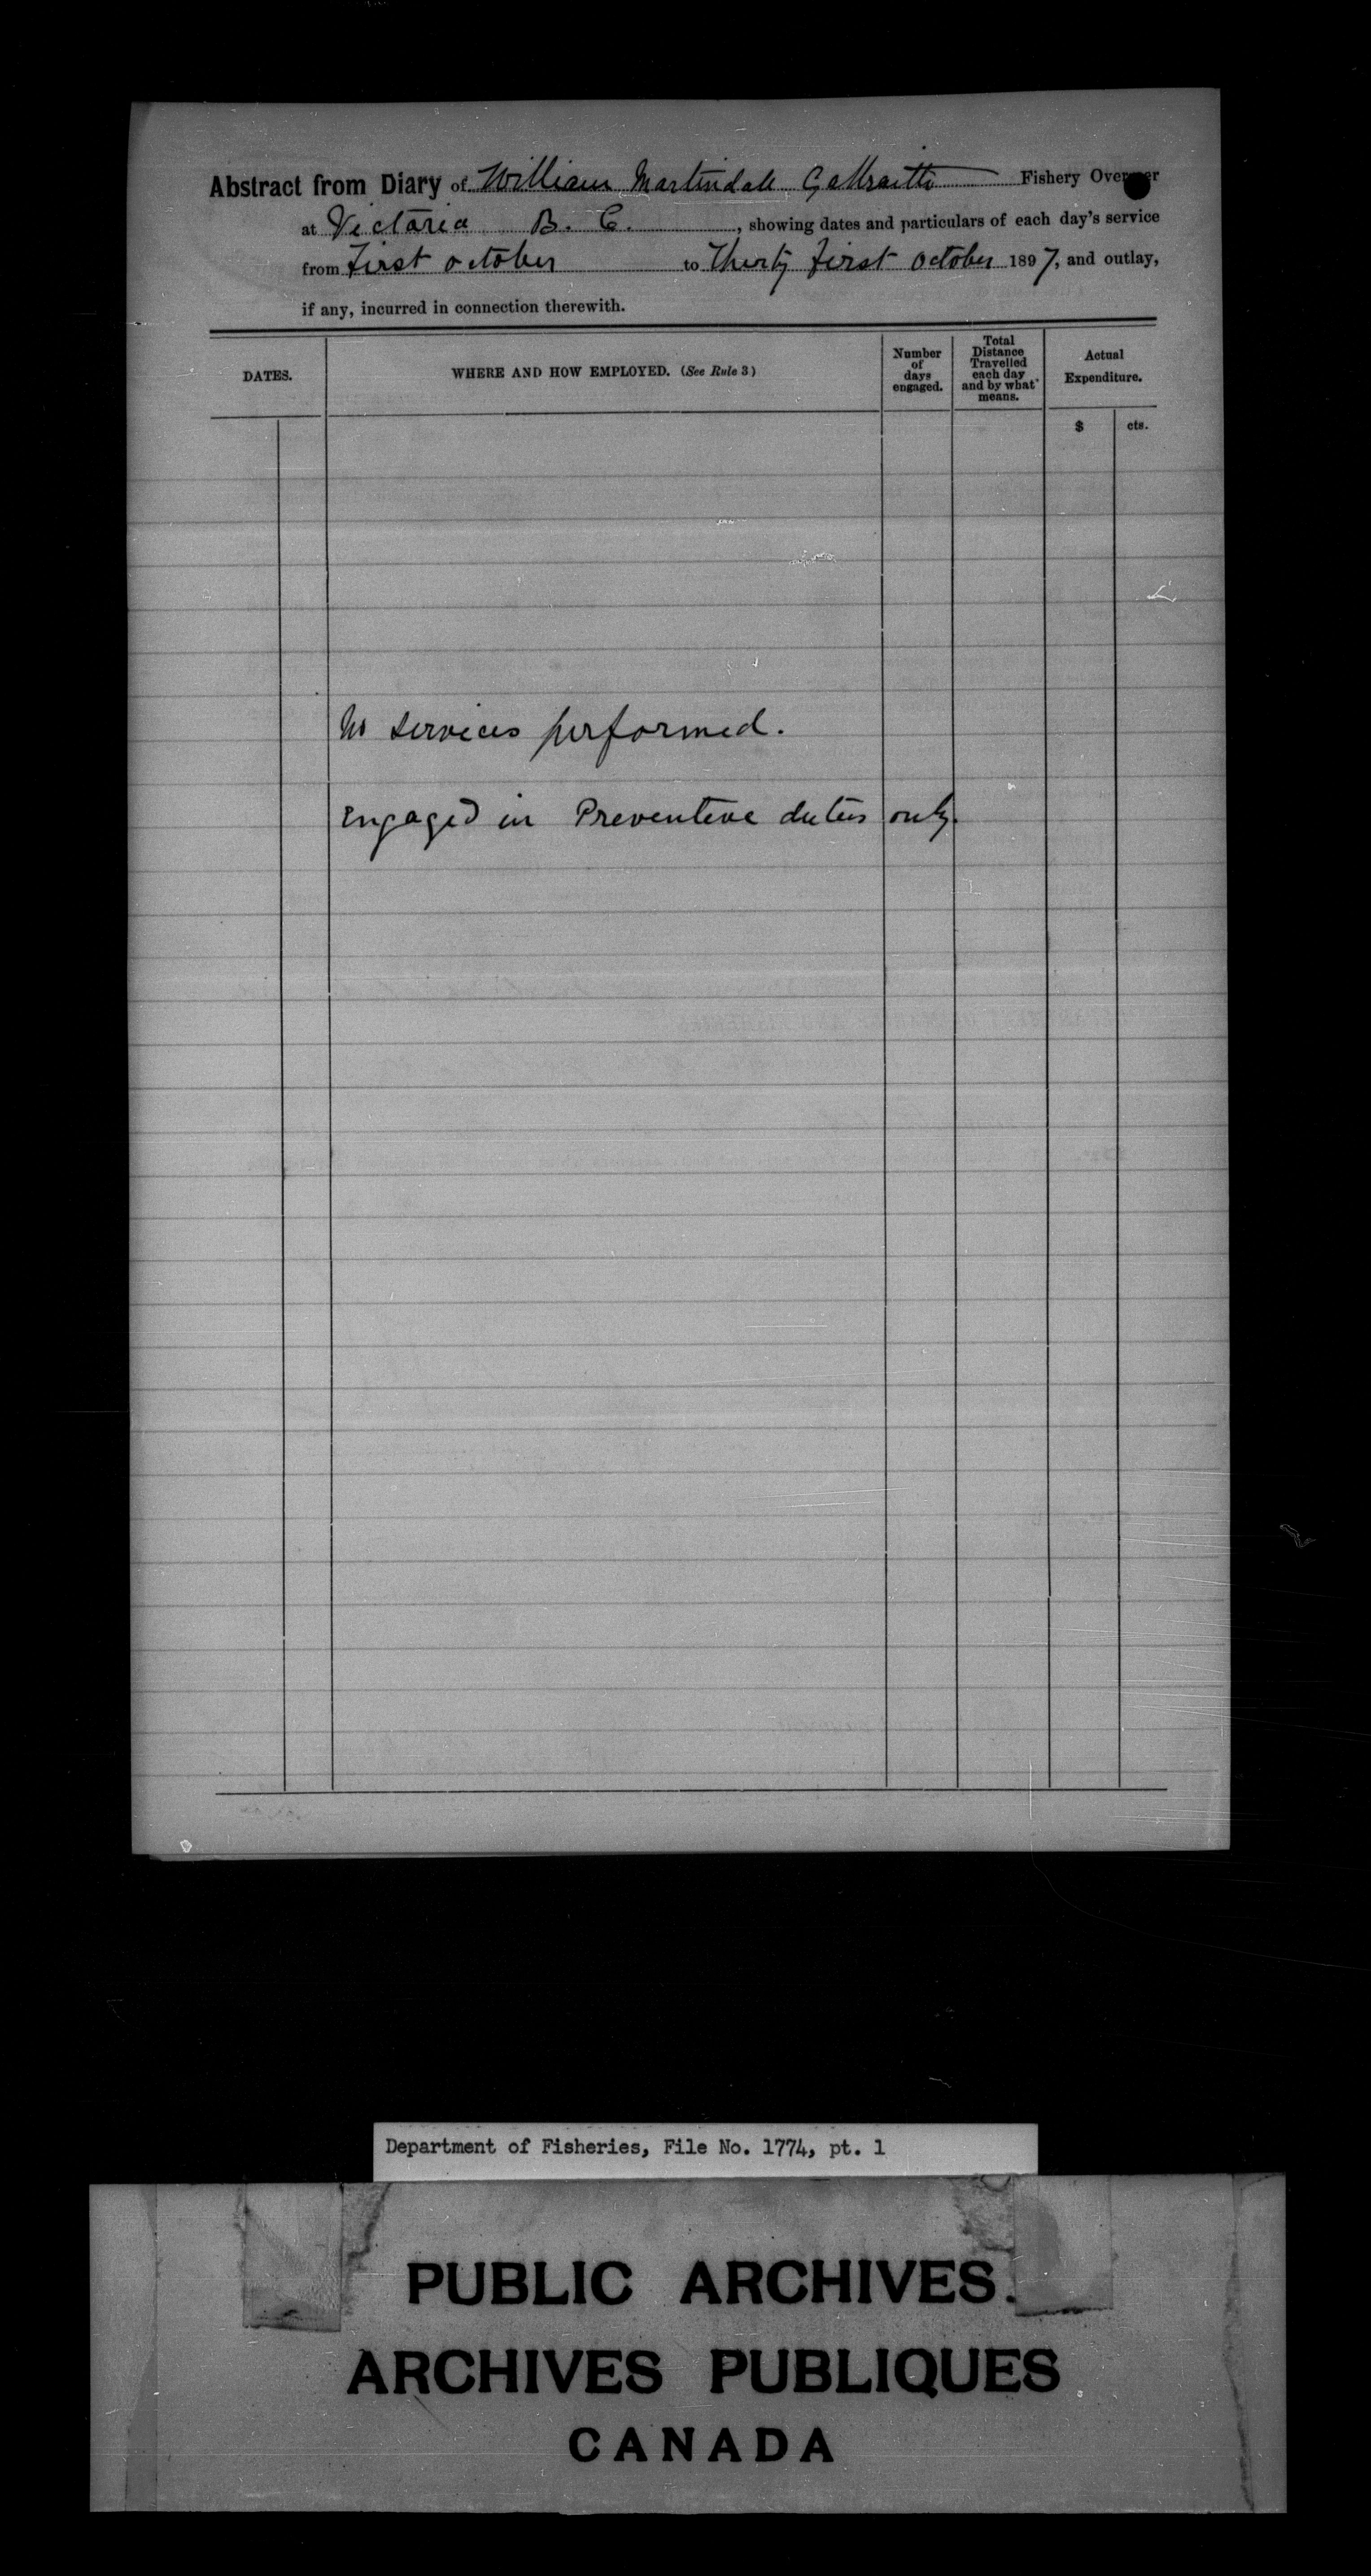 Abstract from Diary of William Martindale Galbraith Fishery Overseer
at Victoria B. C. , showing dates and particulars of each day's service
from First October to Thirty first October 1897, and outlay,
if any, incurred in connection therewith.
DATES.
WHERE AND HOW EMPLOYED. (See Rule 3)
Number
of
days
engaged.
Total
Distance
Travelled
each day
and by what
means.
Actual
Expenditure.
$ cts.
No services performed.
Engaged in Preventive duties only.
Department of Fisheries, File No. 1774, pt. 1
PUBLIC ARCHIVES.
ARCHIVES PUBLIQUES
CANADA